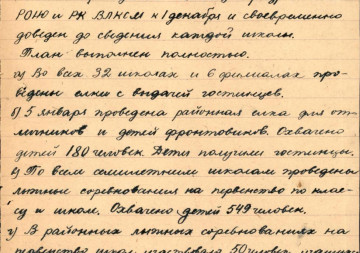 РОНО и РК ВЛКСМ к 1 декабря и своевременно
доведен до сведения каждой школы.
План выполнен полностью.
а) Во всех 32 школах и 6 филиалах про-
ведены елки с выдачей гостинцев.
б) 5 января проведена районная елка для от-
личников и детей фронтовиков. Охвачено
детей 180 человек. Дети получили гостинцы.
в) По всем семилетним школам проведены
лыжные соревнования на первенство по клас-
су и школ. Охвачено детей 549 человек.
г) В районных лыжных соревнованиях на
первенство школ участвовало 50 человек